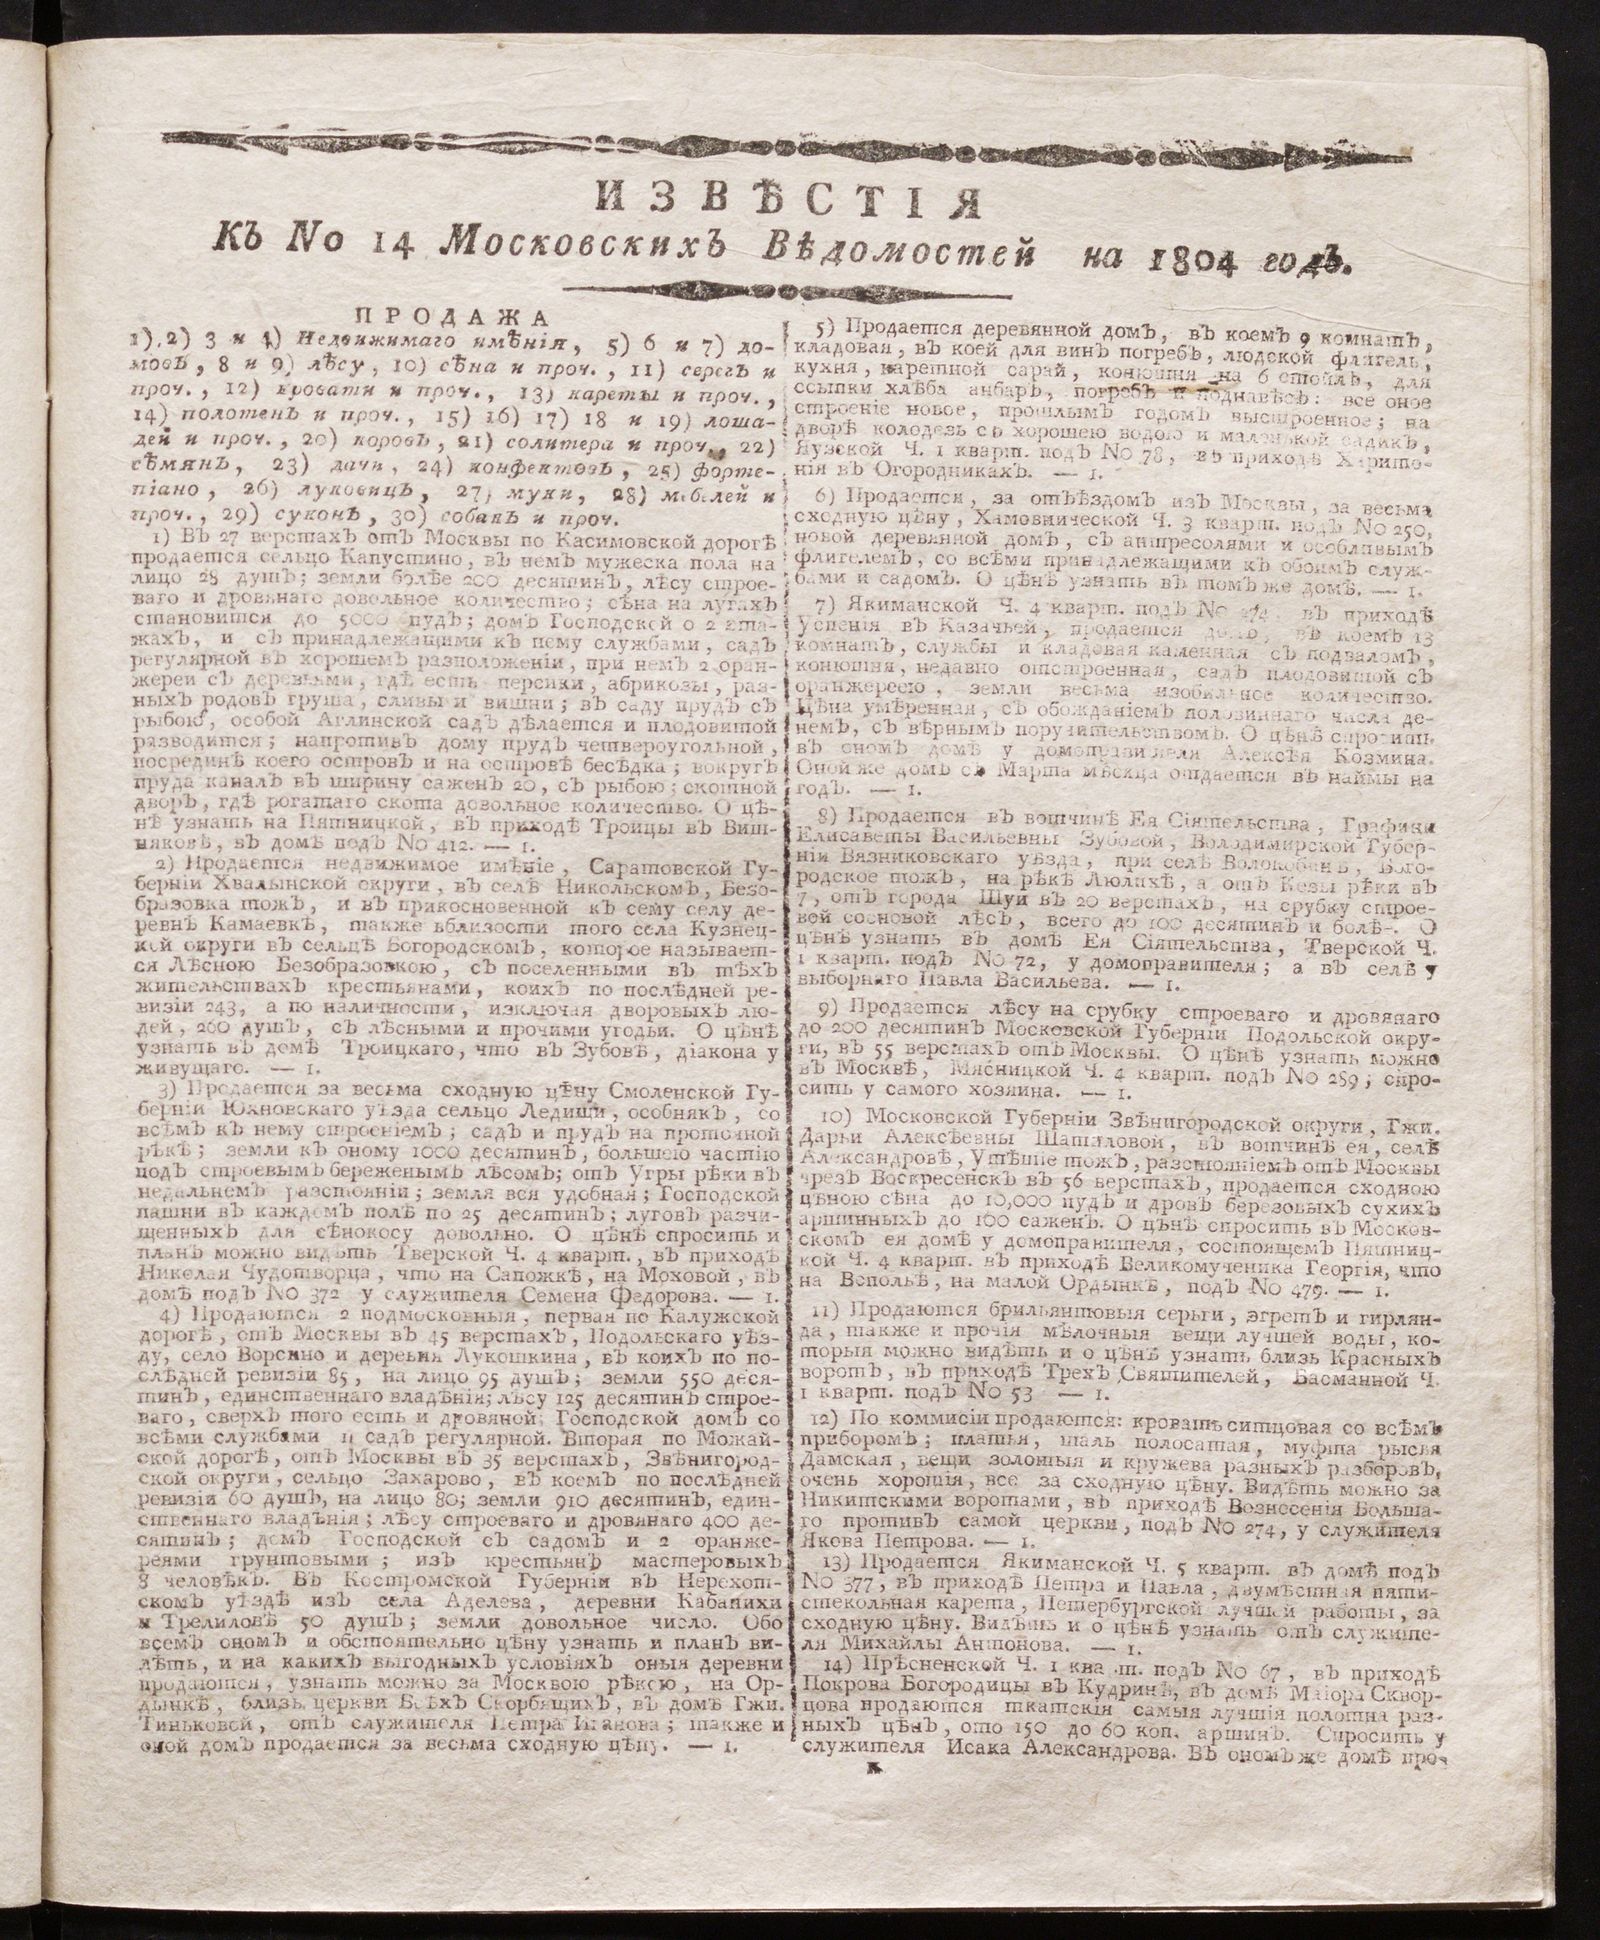 ИЗВѢСТІЯ
КЪ No 14 МосковскихЪ Вѣдомостей на 1804 годЪ.
ПРОДАЖА
1), 2) 3 и 4) Недвижимаго имѣнія, 5) 6 и 7) до-
мовЪ, 8 и 9) лѣсу, 10) сѣна и проч., 11) серегЪ и
проч., 12) кровати и проч., 13) кареты и проч.,
14) полотенЪ и проч., 15) 16) 17) 18 и 19) лоша-
дей и проч., 20) коровЪ, 21) солитера и проч., 22)
сѣмянЪ, 23) дачи, 24) конфектовЪ, 25) форте-
піано, 26) луковицЪ, 27) муки, 28) мебелей и
проч., 29) суконЪ, 30) собакЪ и проч.
1) ВЪ 27 верстахЪ отЪ Москвы по Касимовской дорогѣ
продается сельцо Капустино, вЪ немЪ мужеска пола на
лицо 28 душЪ; земли болѣе 200 десятинЪ, лѣсу строе-
ваго и дровянаго довольное количество; сѣна на лугахЪ
становится до 5000 пудЪ; домЪ Господской о 2 эта-
жахЪ, и сЪ принадлежащими кЪ нему службами, садЪ
регулярной вЪ хорошемЪ разположеніи, при немЪ 2 оран-
жереи сЪ деревьями, гдѣ есть персики, абрикозы, раз-
ныхЪ родовЪ груша, сливы и вишни; вЪ саду прудЪ сЪ
рыбою, особой Аглинской садЪ дѣлается и плодовитой
разводится; напротивЪ дому прудЪ четвероугольной,
посрединѣ коего островЪ и на островѣ бесѣдка; вокругЪ
пруда каналЪ вЪ ширину саженЪ 20, сЪ рыбою; скотной
дворЪ, гдѣ рогатаго скота довольное количество. О цѣ-
нѣ узнать на Пятницкой, вЪ приходѣ Троицы вЪ Виш-
няковѣ, вЪ домѣ подЪ No 412. — 1.
2) Продается недвижимое имѣніе, Саратовской Гу-
берніи Хвалынской округи, вЪ селѣ НикольскомЪ, Безо-
бразовка тожЪ, и вЪ прикосновенной кЪ сему селу де-
ревнѣ КамаевкѢ, также вблизости того села Кузнец-
кой округи вЪ сельцѣ БогородскомЪ, которое называет-
ся Лѣсною Безобразовкою, сЪ поселенными вЪ тѣхЪ
жительствахЪ крестьянами, коихЪ по послѣдней ре-
визіи 243, а по наличности, изключая дворовыхЪ лю-
дей, 260 душЪ, сЪ лѣсными и прочими угодьи. О цѣнѣ
узнать вЪ домѣ Троицкаго, что вЪ Зубовѣ, діакона у
живущаго. — 1.
3) Продается за весьма сходную цѣну Смоленской Гу-
берніи Юхновскаго уѣзда сельцо Ледищи, особнякЪ, со
всѣмЪ кЪ нему строеніемЪ; садЪ и прудЪ на проточной
рѣкѣ; земли кЪ оному 1000 десятинЪ, большею частію
подЪ строевымЪ береженымЪ лѣсомЪ; отЪ Угры рѣки вЪ
недальнемЪ разстояніи; земля вся удобная; Господской
пашни вЪ каждомЪ полѣ по 25 десятинЪ; луговЪ разчи-
щенныхЪ для сѣнокосу довольно. О цѣнѣ спросить и
планЪ можно видѣть Тверской Ч. 4 кварт., вЪ приходѣ
Николая Чудотворца, что на Сапожкѣ, на Моховой, вЪ
домѣ подЪ No 372 у служителя Семена Федорова. — 1.
4) Продаются 2 подмосковныя, первая по Калужской
дорогѣ, отЪ Москвы вЪ 45 верстахЪ, Подольскаго уѣз-
ду, село Ворсино и деревня Лукошкина, вЪ коихЪ по по-
слѣдней ревизіи 85, на лицо 95 душЪ; земли 550 деся-
тинЪ, единственнаго владѣнія; лѣсу 125 десятинЪ строе-
ваго, сверхЪ того есть и дровяной; Господской домЪ со
всѣми службами и садЪ регулярной. Вторая по Можай-
ской дорогѣ, отЪ Москвы вЪ 35 верстахЪ, Звѣнигород-
ской округи, сельцо Захарово, вЪ коемЪ по послѣдней
ревизіи 60 душЪ, на лицо 80; земли 910 десятинЪ, един-
ственнаго владѣнія; лѣсу строеваго и дровянаго 400 де-
сятинЪ; домЪ Господской сЪ садомЪ и 2 оранже-
реями грунтовыми; изЪ крестьянЪ мастеровыхЪ
8 человѣкЪ. ВЪ Костромской Губерніи вЪ Нерехот-
скомЪ уѣздѣ изЪ села Аделева, деревни Кабанихи
и ТрелиловѢ 50 душЪ; земли довольное число. Обо
всемЪ ономЪ и обстоятельно цѣну узнать и планЪ ви-
дѣть, и на какихЪ выгодныхЪ условіяхЪ оныя деревни
продаются, узнать можно за Москвою рѣкою, на Ор-
дынкѣ, близь церкви ВсѣхЪ СкорбящихЪ, вЪ домѣ Гжи.
Тиньковой, отЪ служителя Петра Иванова; также и
оной домЪ продается за весьма сходную цѣну. — 1.
5) Продается деревянной домЪ, вЪ коемЪ 9 комнатЪ,
кладовая, вЪ коей для винЪ погребЪ, людской флигель,
кухня, каретной сарай, конюшня на 6 стойлЪ, для
ссыпки хлѣба анбарЪ, погребЪ и поднавѣсЪ: все оное
строеніе новое, прошлымЪ годомЪ выстроенное; на
дворѣ колодезь сЪ хорошею водою и маленькой садикЪ,
Яузской Ч. 1 кварт. подЪ No 78, вЪ приходѣ Харито-
нія вЪ ОгородникахЪ. — 1.
6) Продается, за отЪѣздомЪ изЪ Москвы, за весьма
сходную цѣну, Хамовнической Ч. 3 кварт. подЪ No 250,
новой деревянной домЪ, сЪ антресолями и особливымЪ
флигелемЪ, со всѣми принадлежащими кЪ обоимЪ служ-
бами и садомЪ. О цѣнѣ узнать вЪ томЪ же домѣ. — 1.
7) Якиманской Ч. 4 кварт. подЪ No 474, вЪ приходѣ
Успенія вЪ Казачьей, продается домЪ, вЪ коемЪ 13
комнатЪ, службы и кладовая каменная сЪ подваломЪ,
конюшня, недавно отстроенная, садЪ плодовитой сЪ
оранжереею, земли весьма изобильное количество.
Цѣна умѣренная, сЪ обожданіемЪ половиннаго числа де-
негЪ, сЪ вѣрнымЪ поручительствомЪ. О цѣнѣ спросить
вЪ ономЪ домѣ у домоправителя Алексѣя Козмина.
Оной же домЪ сЪ Марта мѣсяца отдается вЪ наймы на
годЪ. — 1.
8) Продается вЪ вотчинѣ Ея Сіятельства, Графини
Елисаветы Васильевны Зубовой, Володимирской Губер-
ніи Вязниковскаго уѣзда, при селѣ ВолокобинѢ, Бого-
родское тожЪ, на рѣкѣ Люлихѣ, а отЪ Кезы рѣки вЪ
7, отЪ города Шуи вЪ 20 верстахЪ, на срубку строе-
вой сосновой лѣсЪ, всего до 100 десятинЪ и болѣе. О
цѣнѣ узнать вЪ домѣ Ея Сіятельства, Тверской Ч.
1 кварт. подЪ No 72, у домоправителя; а вЪ селѣ у
выборнаго Павла Васильева. — 1.
9) Продается лѣсу на срубку строеваго и дровянаго
до 200 десятинЪ Московской Губерніи Подольской окру-
ги, вЪ 55 верстахЪ отЪ Москвы. О цѣнѣ узнать можно
вЪ Москвѣ, Мясницкой Ч. 4 кварт. подЪ No 289, спро-
сить у самого хозяина. — 1.
10) Московской Губерніи Звѣнигородской округи, Гжи.
Дарьи Алексѣевны Шатиловой, вЪ вотчинѣ ея, селѣ
Александровѣ, Утѣшіе тожЪ, разстояніемЪ отЪ Москвы
чрезЪ ВоскресенскЪ вЪ 56 верстахЪ, продается сходною
цѣною сѣна до 10,000 пудЪ и дровЪ березовыхЪ сухихЪ
аршинныхЪ до 100 саженЪ. О цѣнѣ спросить вЪ Москов-
скомЪ ея домѣ у домоправителя, состоящемЪ Пятниц-
кой Ч. 4 кварт. вЪ приходѣ Великомученика Георгія, что
на Вспольѣ, на малой Ордынкѣ, подЪ No 479. — 1.
11) Продаются брильянтовыя серьги, эгретЪ и гирлян-
да, также и прочія мѣлочныя вещи лучшей воды, ко-
торыя можно видѣть и о цѣнѣ узнать близь КрасныхЪ
воротЪ, вЪ приходѣ ТрехЪ Святителей, Басманной Ч.
1 кварт. подЪ No 53 — 1.
12) По коммисіи продаются: кровать ситцовая со всѣмЪ
приборомЪ; платья, шаль полосатая, муфта рысья
Дамская, вещи золотыя и кружева разныхЪ разборовЪ,
очень хорошія, все за сходную цѣну. Видѣть можно за
Никитскими воротами, вЪ приходѣ Вознесенія Больша-
го противЪ самой церкви, подЪ No 274, у служителя
Якова Петрова. — 1.
13) Продается Якиманской Ч. 5 кварт. вЪ домѣ подЪ
No 377, вЪ приходѣ Петра и Павла, двумѣстная пяти-
стекольная карета, Петербургской лучшей работы, за
сходную цѣну. Видѣть и о цѣнѣ узнать отЪ служите-
ля Михайлы Антонова. — 1.
14) Прѣсненской Ч. 1 кварт. подЪ No 67, вЪ приходѣ
Покрова Богородицы вЪ Кудринѣ, вЪ домѣ Маіора Сквор-
цова продаются ткатскія самыя лучшія полотна раз-
ныхЪ цѣнЪ, ото 150 до 60 коп. аршинЪ. Спросить у
служителя Исака Александрова. ВЪ ономЪ же домѣ про-
К